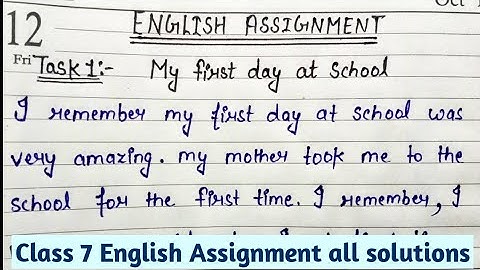 Oct
12
ENGLISH ASSIGNMENT
Fri
Task 1:- My first day at School
I remember my first day at school was
very amazing. my mother took me to the
school for the first time. I remember, I
Class 7 English Assignment all solutions